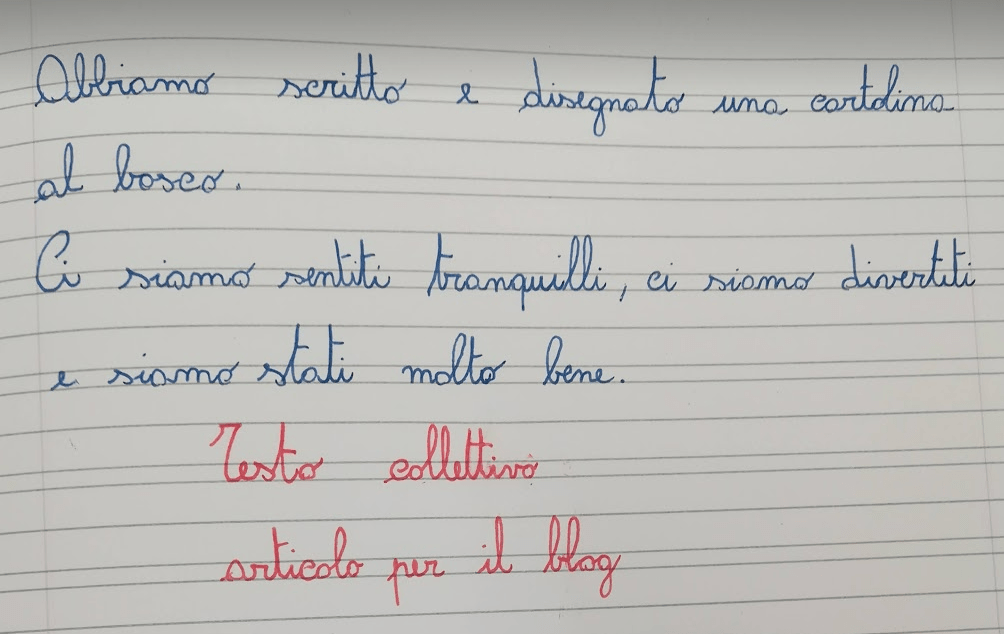 Abbiamo scritto e disegnato una cartolina
al bosco.
Ci siamo sentiti tranquilli, ci siamo divertiti
e siamo stati molto bene.
Testo collettivo
articolo per il blog